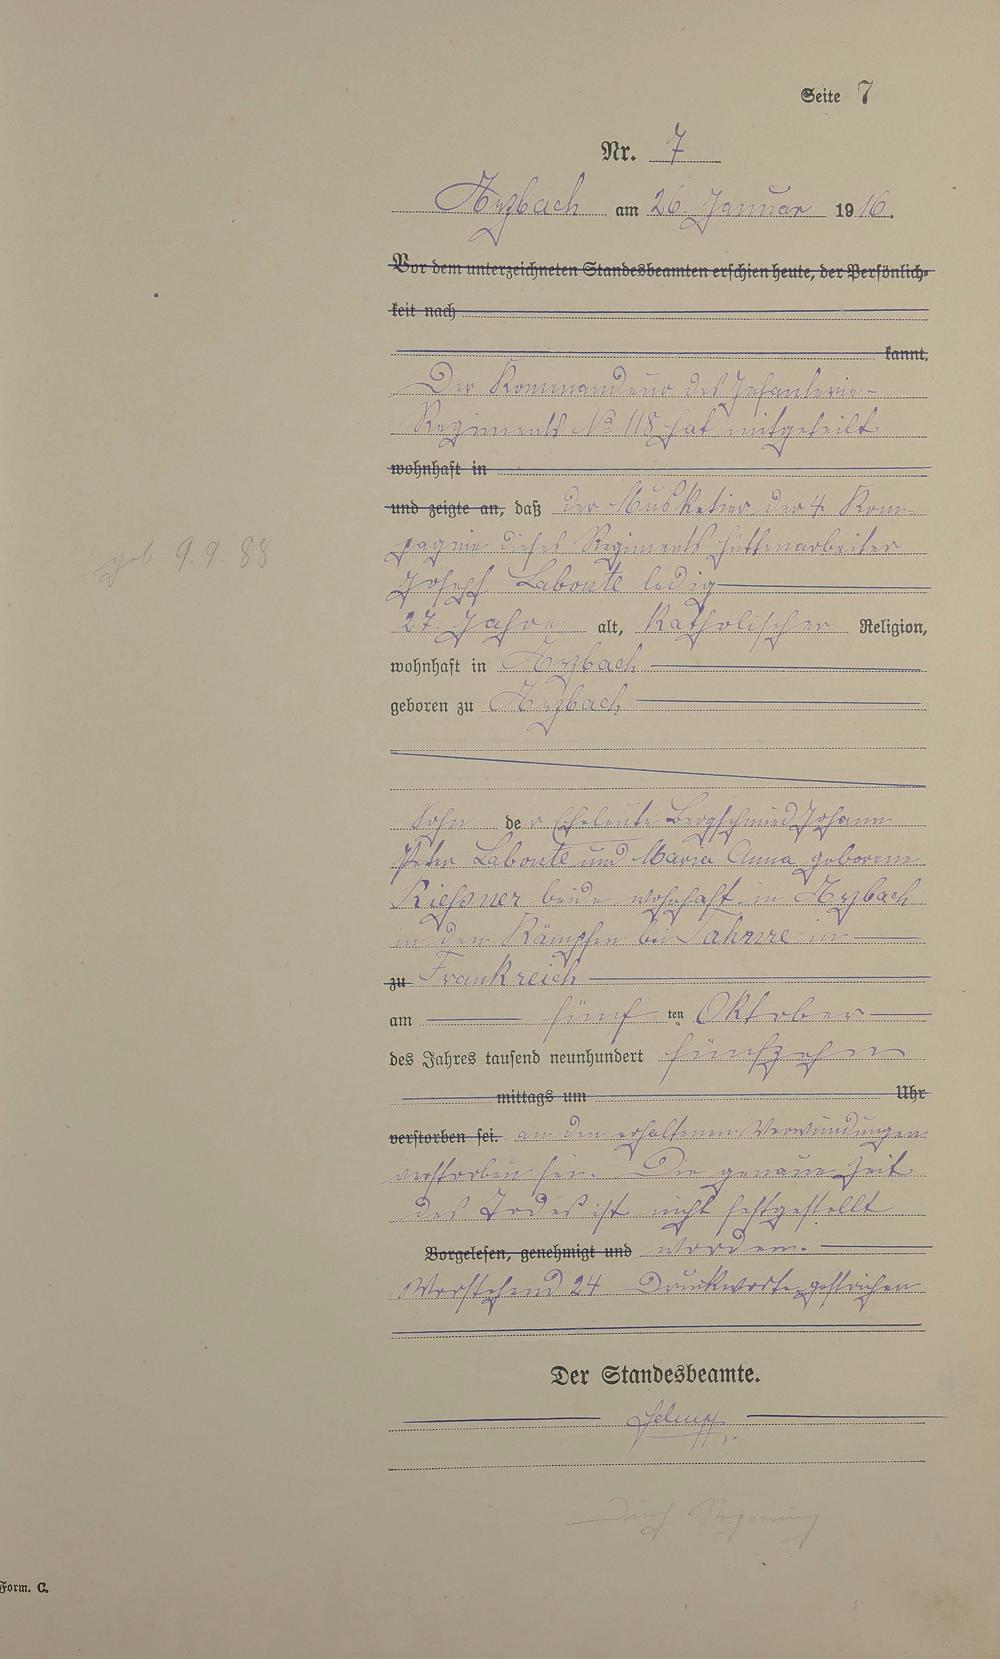 Seite 7
Nr. 7
Arzbach am 26. Januar 1916.
Vor dem unterzeichneten Standesbeamten erschien heute, der Persönlich-
keit nach
kannt,
Der Kommandeur des Infanterie-
Regiments No 118 hat mitgeteilt
wohnhaft in
und zeigte an, daß der Musketier der 4. Kom-
pagnie dieses Regiments Hüttenarbeiter
geb 9.9.88
Joseph Labonte ledig
27 Jahre alt, katholischer Religion,
wohnhaft in Arzbach
geboren zu Arzbach
Sohn der Eheleute Bergschmied Johann
Peter Labonte und Maria Anna geborene
beide wohnhaft in Arzbach
in den Kämpfen bei Tahure in
zu Frankreich
am fünf ten Oktober
des Jahres tausend neunhundert fünfzehn
mittags um Uhr
verstorben sei. an den erhaltenen Verwundungen
verstorben sei. Die genaue Zeit
des Todes ist nicht festgestellt
Vorgelesen, genehmigt und worden.
Vorstehend 24 Druckworte gestrichen
Der Standesbeamte.
Form. C.